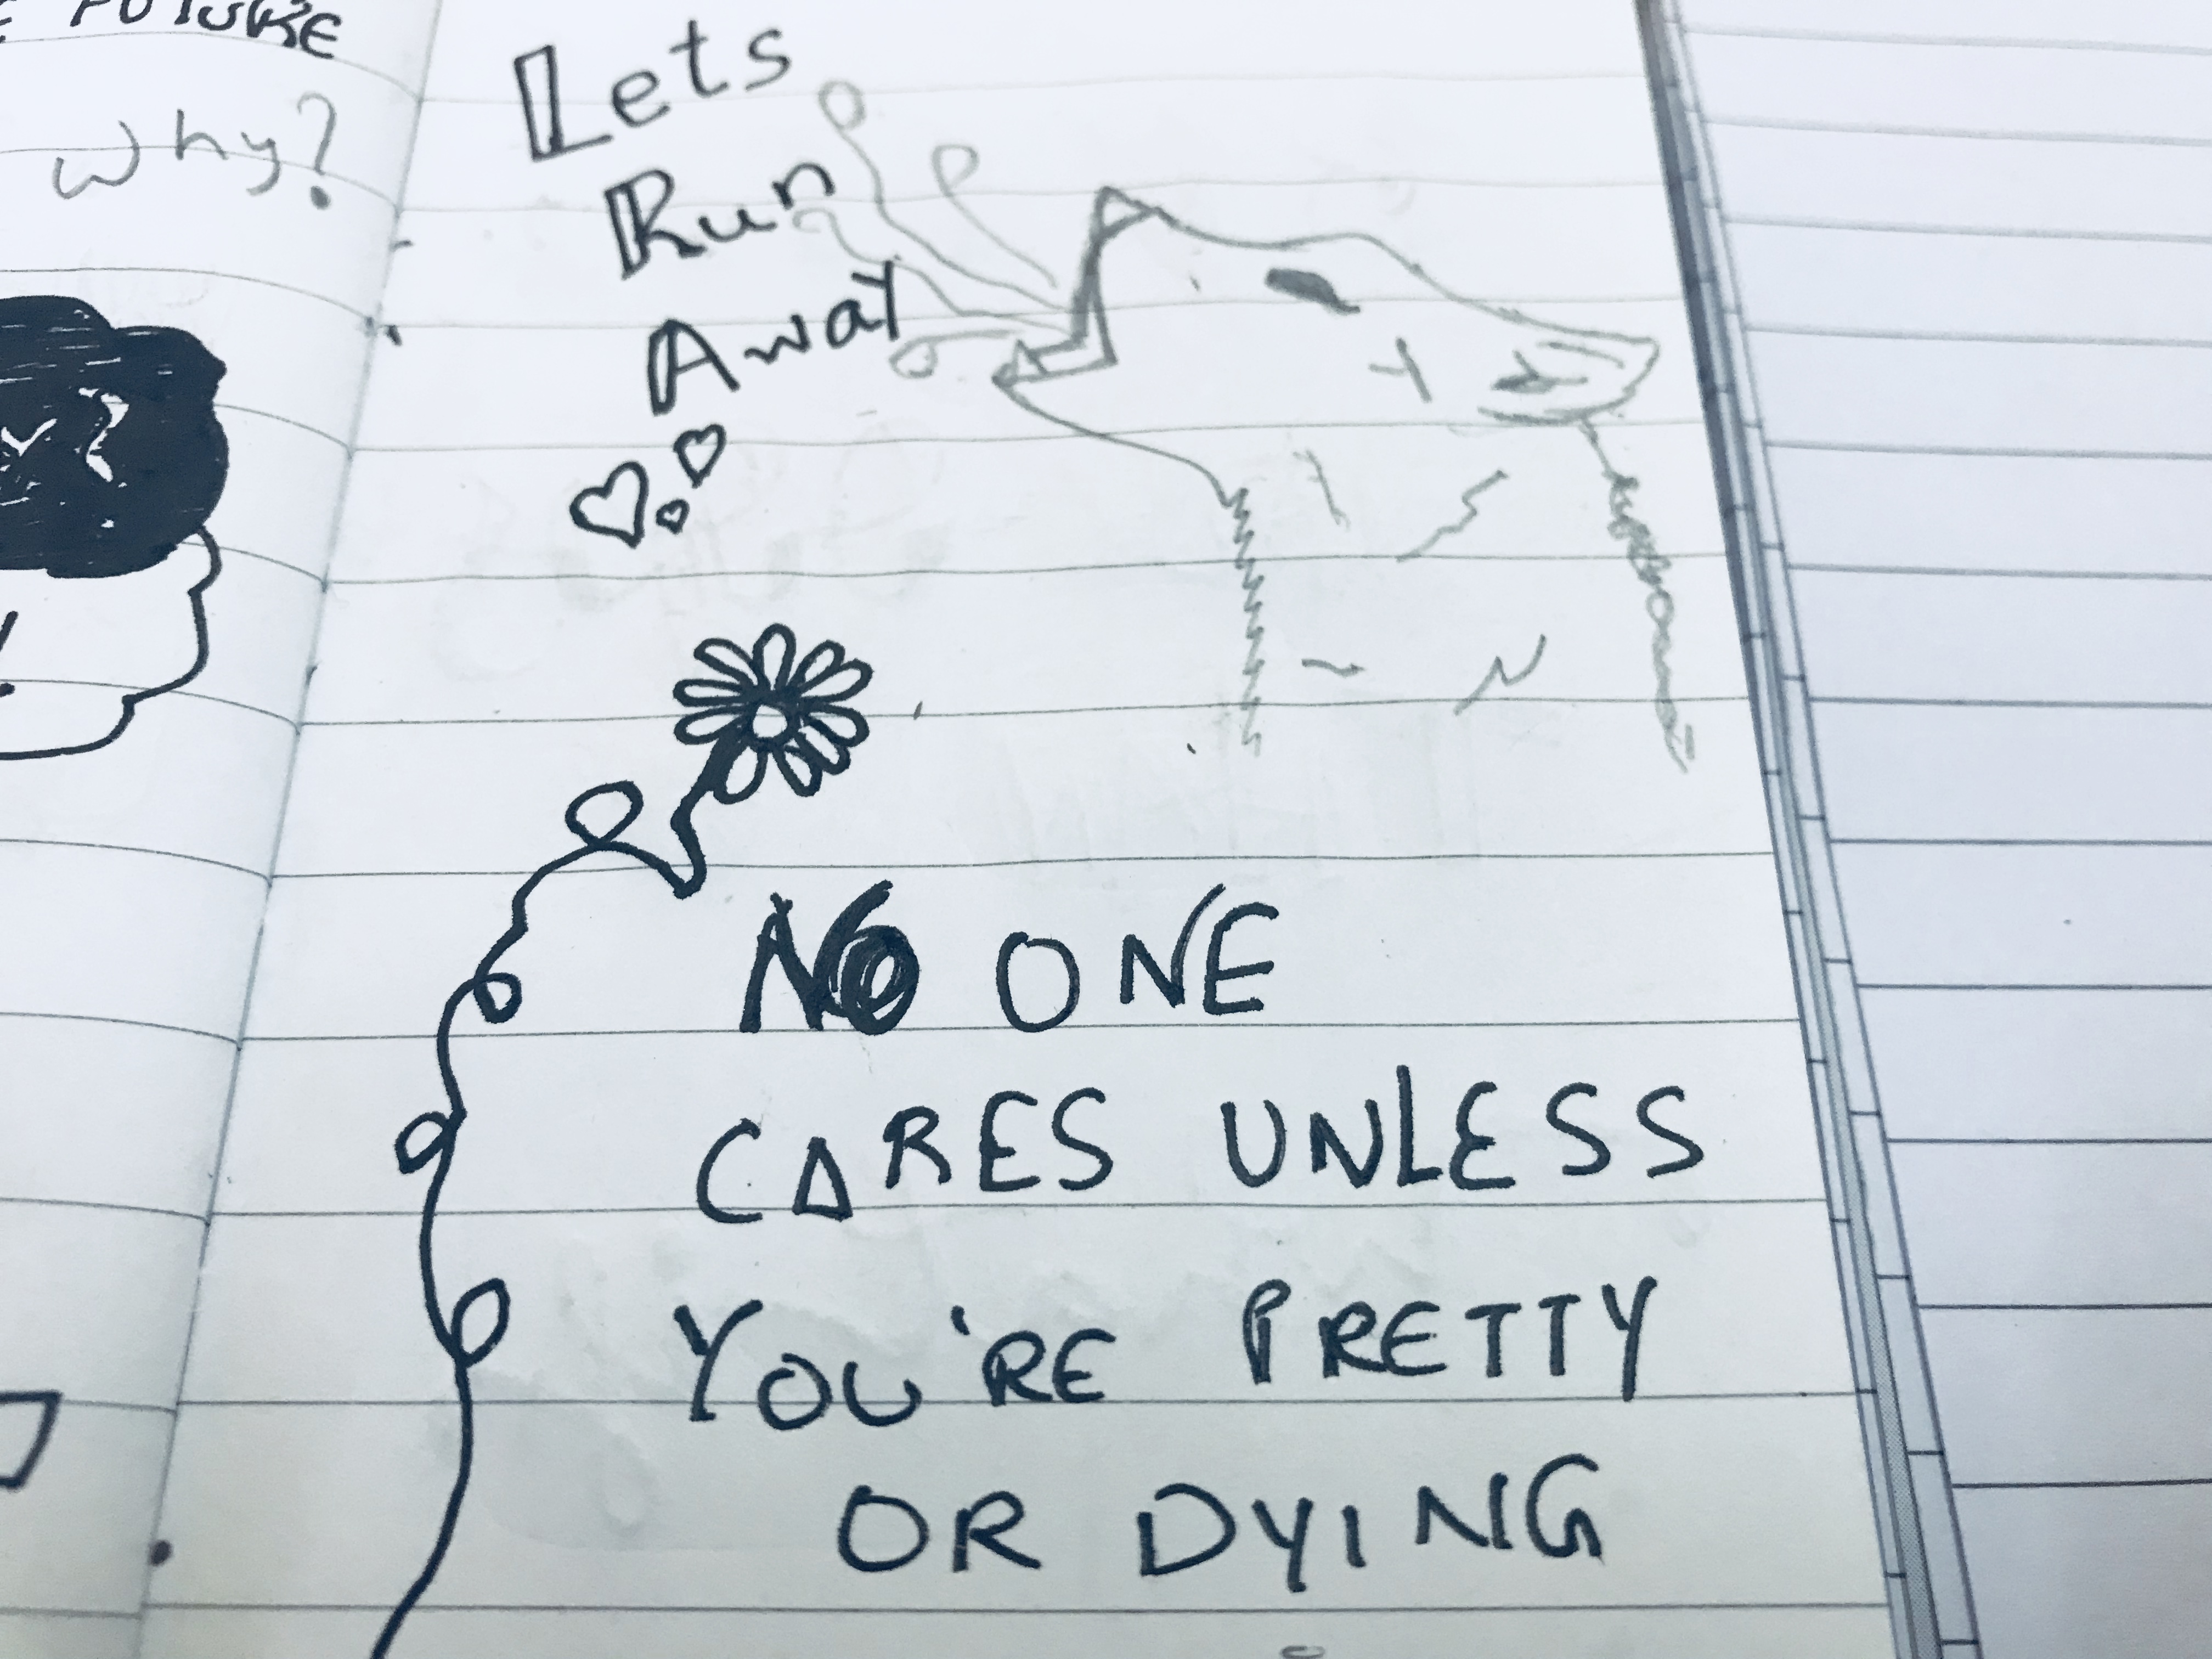 FUTURE
Why?
Lets
Run
Away
NO ONE
CARES UNLESS
YOU'RE PRETTY
OR DYING